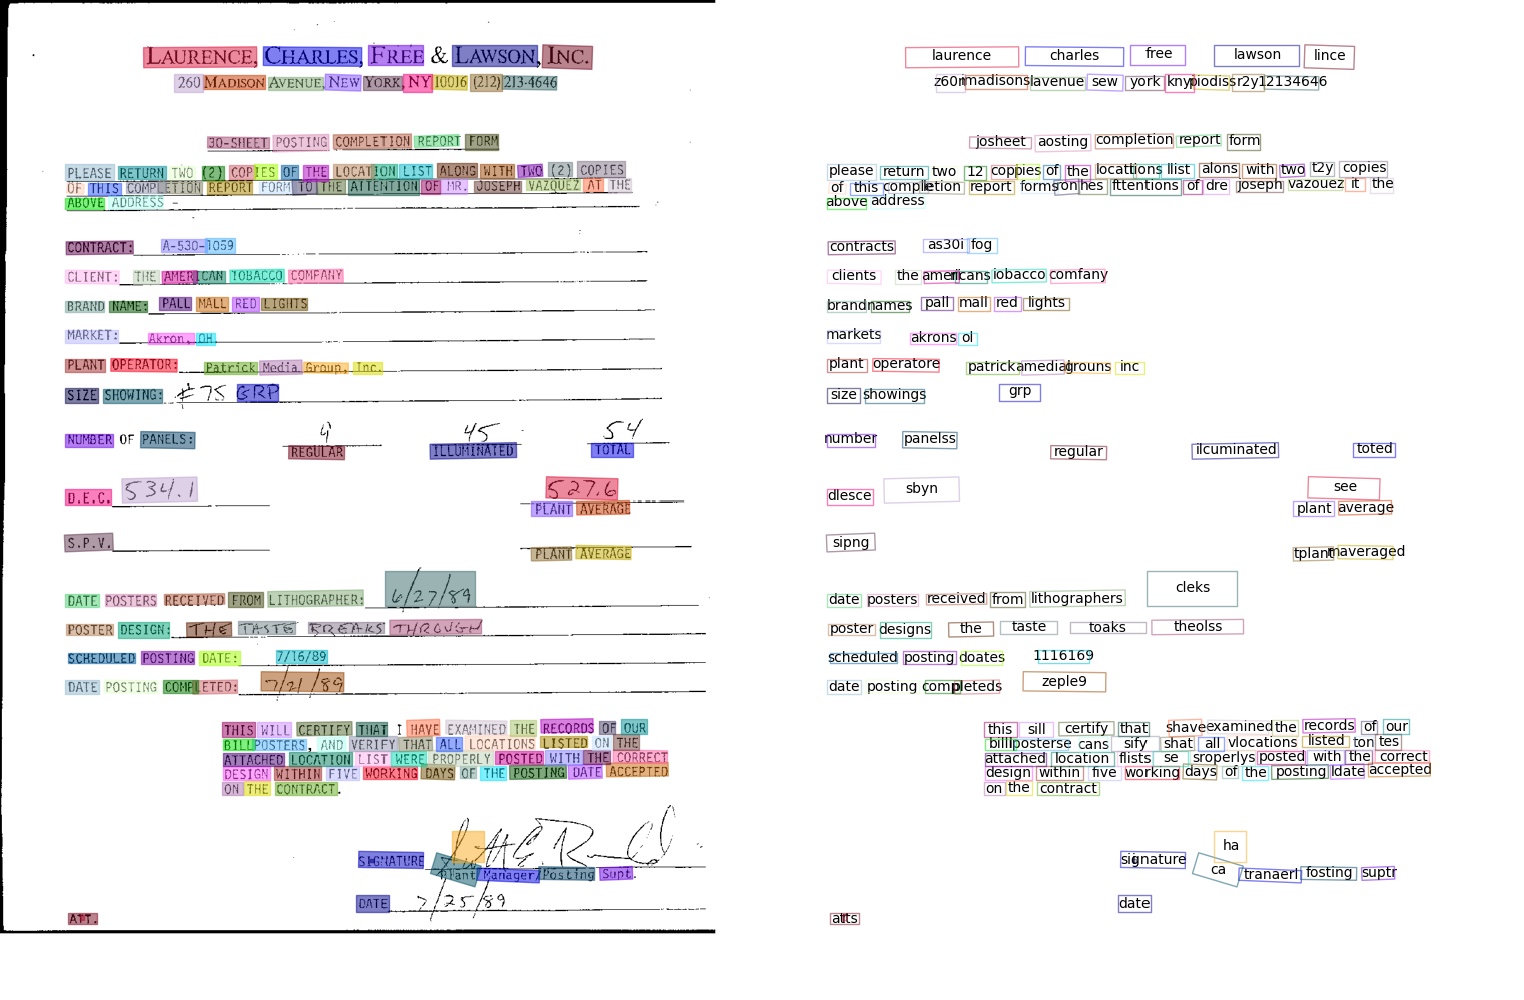 LAURENCE, CHARLES, FREE & LAWSON, INC.
260 MADISON AVENUE, NEW YORK, NY 10016 (212) 213-4646
30-SHEET POSTING COMPLETION REPORT FORM
PLEASE RETURN TWO (2) COPIES OF THE LOCATION LIST ALONG WITH TWO (2) COPIES
OF THIS COMPLETION REPORT FORM TO THE ATTENTION OF MR. JOSEPH VAZQUEZ AT THE
ABOVE ADDRESS -
CONTRACT: A-530-1059
CLIENT: THE AMERICAN TOBACCO COMPANY
BRAND NAME: PALL MALL RED LIGHTS
MARKET: Akron, OH
PLANT OPERATOR: Patrick Media Group, Inc.
SIZE SHOWING: #75 GRP
NUMBER OF PANELS: 9 45 54
REGULAR ILLUMINATED TOTAL
D.E.C. 534.1 527.6
PLANT AVERAGE
S.P.V.
PLANT AVERAGE
DATE POSTERS RECEIVED FROM LITHOGRAPHER: 6/27/89
POSTER DESIGN: THE TASTE BREAKS THROUGH
SCHEDULED POSTING DATE: 7/16/89
DATE POSTING COMPLETED: 7/21/89
THIS WILL CERTIFY THAT I HAVE EXAMINED THE RECORDS OF OUR
BILLPOSTERS, AND VERIFY THAT ALL LOCATIONS LISTED ON THE
ATTACHED LOCATION LIST WERE PROPERLY POSTED WITH THE CORRECT
DESIGN WITHIN FIVE WORKING DAYS OF THE POSTING DATE ACCEPTED
ON THE CONTRACT.
SIGNATURE
Plant Manager/Posting Supt.
DATE 7/25/89
ATT.
laurence charles free lawson lince
z60n madisons lavenue sew york kny piodiss r2y1 2134646
josheet aosting completion report form
please return two 12 coppies of the locattions llist alons with two t2y copies
of this completion report forms fttentions of dre joseph vazouez it the
above address
contracts as30i fog
clients the iobacco comfany
brandnames pall mall red lights
markets akrons ol
plant operatore patricka inc
size showings grp
number panelss
regular ilcuminated toted
dlesce sbyn see
plant average
sipng
tplant maveraged
date posters received from lithographers cleks
poster designs the taste toaks theolss
scheduled posting doates 1116169
date posting zeple9
this sill certify that shave examined the records of our
cans sify shat all vlocations listed ton tes
attached location flists se sroperlys posted with the correct
design within five working days of the posting ldate accepted
on the contract
signature ha
ca tranaerl fosting suptr
date